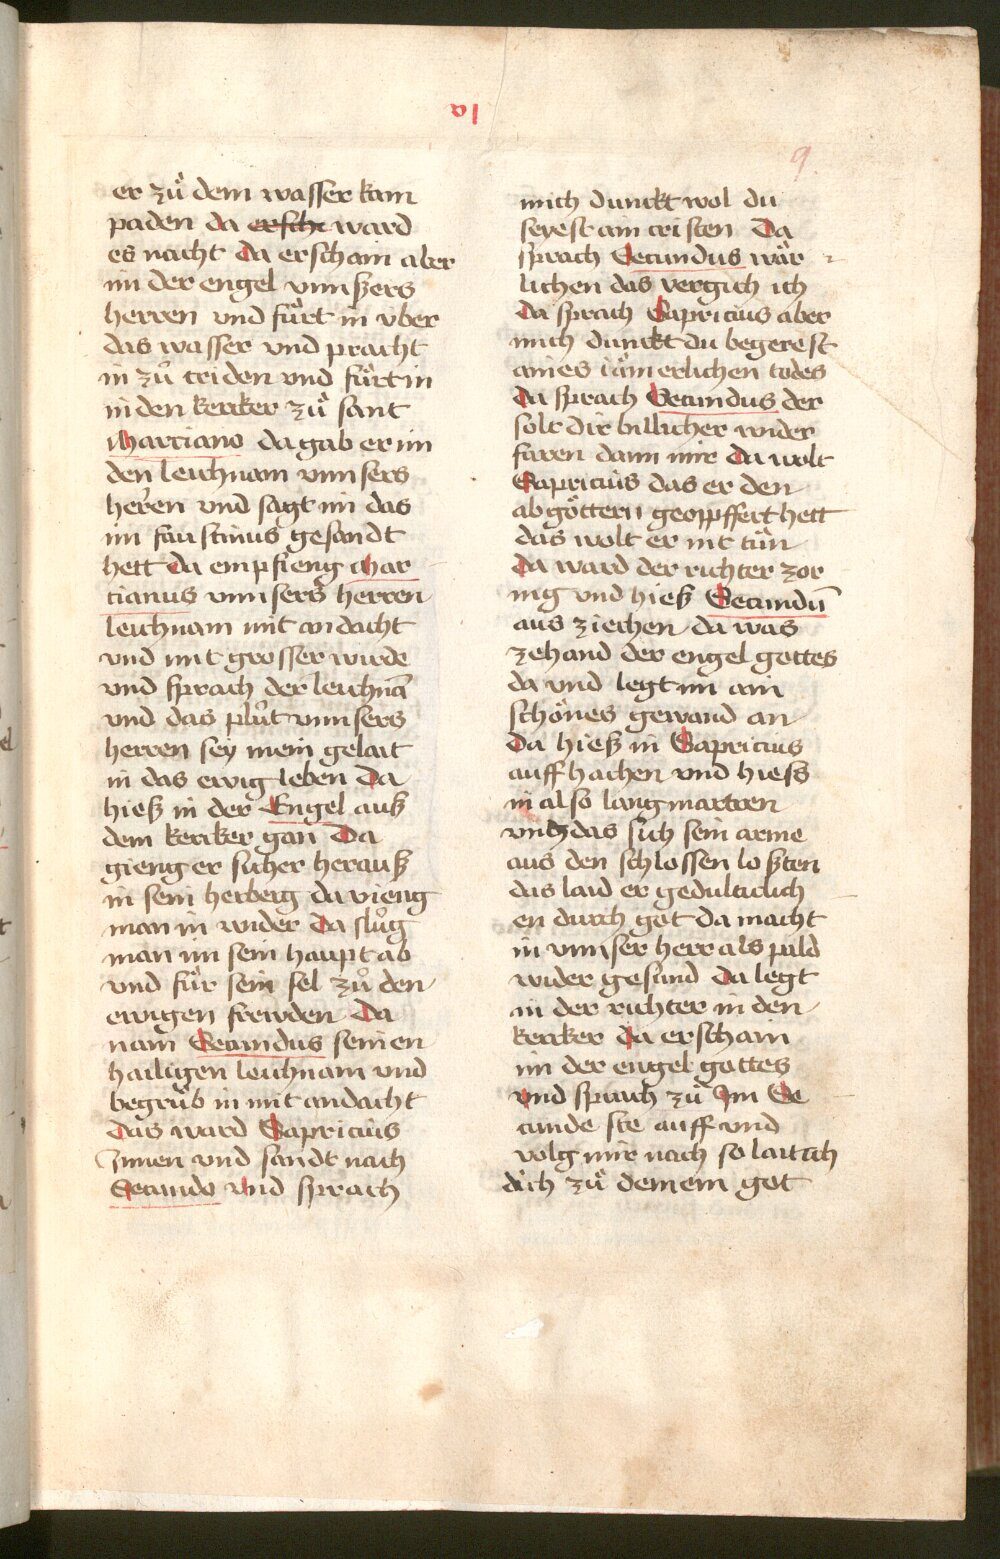 vi
9
er zuͤ dem wasser kam
paden da ersche ward
es nacht Da erschain aber
im der engel vnnßers
herren vnd fuͤrt in vber
das wasser vnd pracht
in zuͦ triden vnd fuͤrt in
in den kercker zuͤ sant
Marciano da gab er im
den leichnam vnnsers
herren vnd sagt im das
im faustinus gesandt
hett Da empfieng Mar
cianus vnnsers herren
leichnam mit andacht
vnd mit grosser wirde
vnd sprach der leichnā
vnd das pluͦt vnnsers
herren sey mein gelait
in das ewig leben Da
hieß in der Engel auß
dem kercker gan Da
gieng er sicher herauß
in sein herberg da vieng
man in wider Da sluͦg
man im sein haupt ab
vnd fuͤr sein sel zuͦ den
ewigen frewden Da
nam Secundus seinen
hailigen leichnam vnd
begruͤb in mit andacht
Das ward Sapricius
Innen vnd sandt nach
Secundo vnd sprach
mich dunckt wol du
seyest ain cristen Da
sprach Secundus waͤr
lichen das vergich ich
Da sprach Sapricius aber
mich dunckt du begerest
aines iaͤmerlichen todes
Da sprach Secundus der
solt dir billicher wider
faren dann mir Da wolt
Sapricius das er den
abgöttern geopffert hett
das wolt er nit tuͤn
Da ward der richter zor
nig vnd hieß Secundū
aus ziechen da was
zehand der engel gottes
da vnd legt im ain
schönes gewand an
Da hieß in Sapricius
auff hachen vnd hiess
in also lang martren
vnntz das sich sein arme
aus den schlossen loßten
das laid er gedulticlich
en durch got da macht
in vnnser herr als pald
wider gesund Da legt
in der richter in den
kercker Da erschain
im der engel gottes
vnd sprach zuͤ Im Se
cunde ste auff vnd
volg mir nach so lait ich
dich zuͤ deinem got